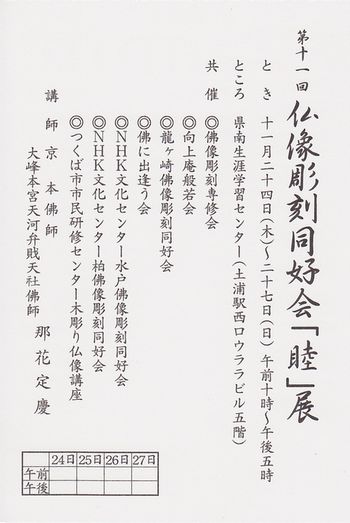 第十一回
仏像彫刻同好会「睦」展
とき 十一月二十四日(木)〜二十七日(日) 午前十時〜午後五時
ところ 県南生涯学習センター(土浦駅西口ウララビル五階)
共催 ◎佛像彫刻専修会
◎向上庵般若会
◎龍ヶ崎佛像彫刻同好会
◎佛に出逢う会
◎NHK文化センター水戸佛像彫刻同好会
◎NHK文化センター柏佛像彫刻同好会
◎つくば市市民研修センター木彫り仏像講座
講師 京本佛師
大峰本宮天河弁財天社佛師 那花定慶
24日 25日 26日 27日
午前
午後